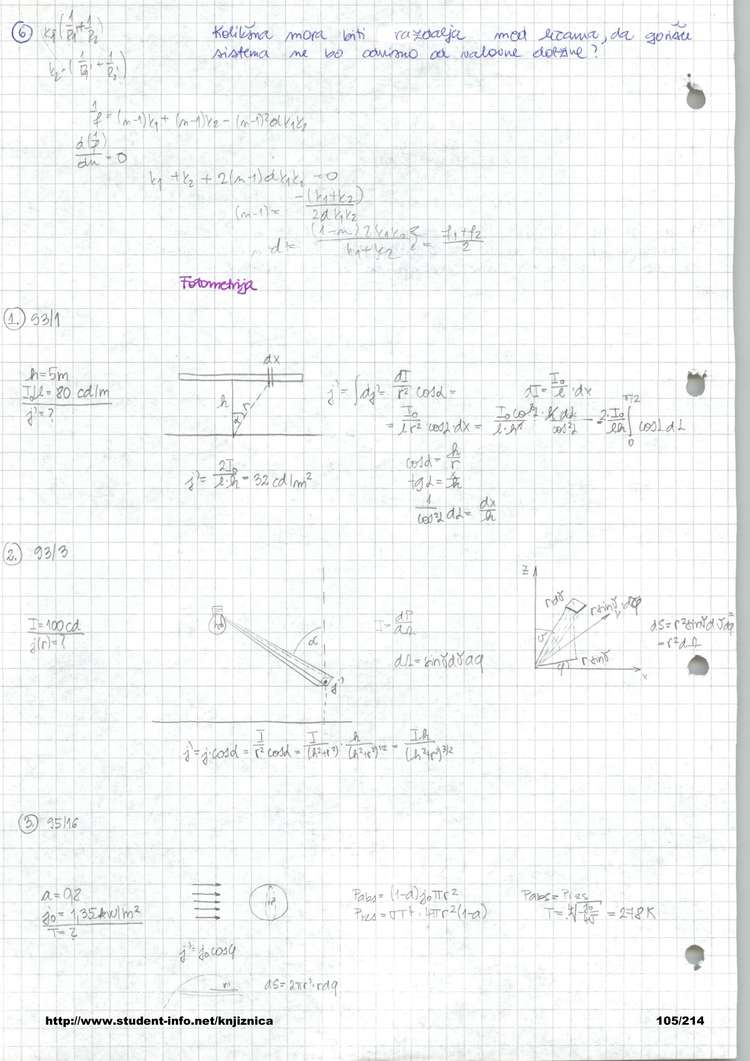 6 k₁(1/R₁ + 1/R₂)
k₂ = (1/R₁' + 1/R₂')
Kolikšna mora biti razdalja med lečama, da gorišče
sistema ne bo odvisno od valovne dolžine?
1/f = (n-1)k₁ + (n-1)k₂ - (n-1)²dk₁k₂
d(1/f)/dn = 0
k₁ + k₂ + 2(n-1)dk₁k₂ = 0
(n-1) = -(k₁+k₂)/2dk₁k₂
= (f₁+f₂)/2
Fotometrija
1. 93/1
h = 5m
I₀/l = 80 cd/m
j' = ?
dx
h
r
α
j' = ∫dj' = dI/r² cosα =
dI = I₀/l · dx
= I₀/lr² cosα · dx = = 2·I₀/lh ∫₀^π/2 cosα dα
cosα = h/r
tgα = x/h
1/cos²α dα = dx/h
j' = 2I₀/l·h = 32 cd/m²
2. 93/3
I = 100cd
j(r) = ?
α
j'
I = dP/dΩ
dΩ = sinϑdϑdφ
z
rdϑ
r sinϑ dφ
y
ϑ
φ
r sinϑ
x
dS = r² sinϑdϑdφ =
= r²dΩ
j' = j·cosα = I/r² cosα = I/(h²+r²) · h/(h²+r²)^1/2 = Ih/(h²+r²)^3/2
3. 95/16
a = 0,8
j₀ = 1,35 kW/m²
T = ?
Pabs = (1-a)j₀πr²
Pizs = σT⁴·4πr²(1-a)
Pabs = Pizs
T = ⁴√(j₀/4σ) = 278 K
j' = j₀cosφ
r'
dS = 2πr'·rdφ
http://www.student-info.net/knjiznica
105/214